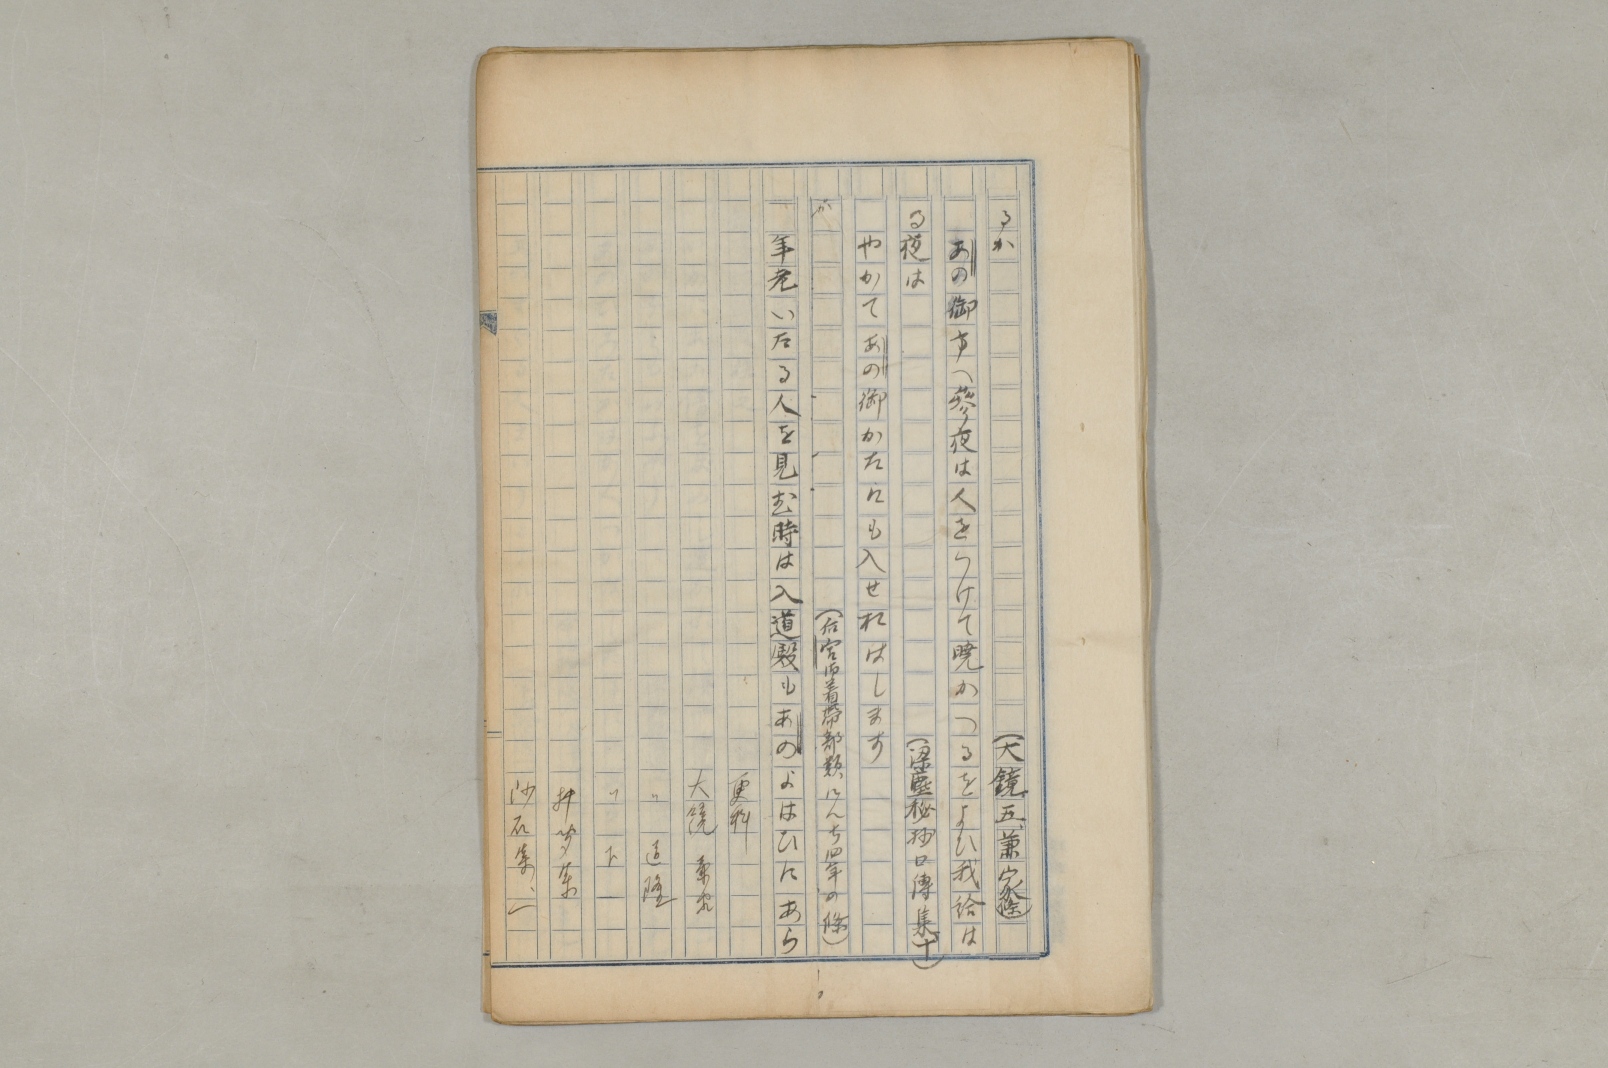 るか　(大鏡五、兼家條)
あの御方へ參夜は人をつけて暁かつるをよひ我給は
る夜は　(梁塵秘抄口傳集十)
やかてあの御かたにも入せおはします
か　(后宮御着帯部類にんち四年の條)
年老いたる人を見む時は入道殿もあのよはひにあら
更科
大鏡 兼家
〃 道隆
〃 下
沙石集、一